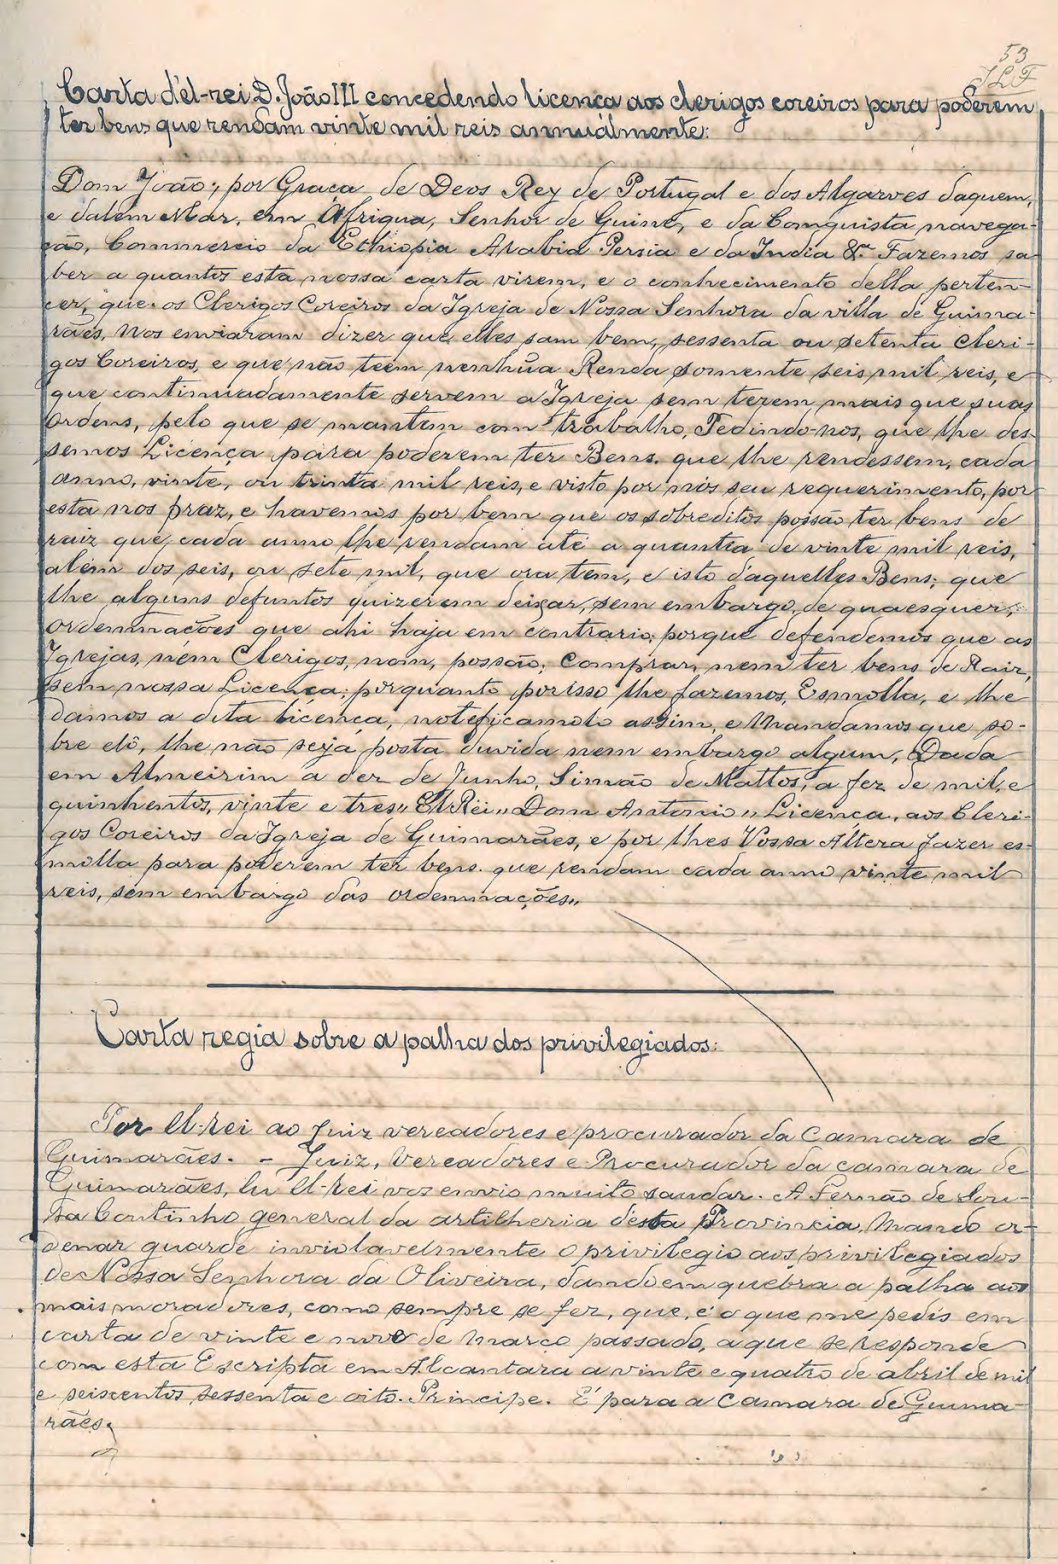 53
Carta d'él-rei D. João III concedendo licença aos clerigos coreiros para poderem
ter bens que rendam vinte mil reis annuálmente:
Dom João, por Graça de Deos Rey de Portugal e dos Algarves daquem,
e dalém Mar, em Áfriqua, Senhor de Guiné, e da Conquista navega-
ção, Commercio da Ethiopia Arabia Persia e da India &. Fazemos sa-
ber a quantos esta nossa carta virem, e o conhecimento della perten-
cer, que os Clerigos Coreiros da Igreja de Nossa Senhora da villa de Guima-
rães, Nos enviaram dizer que elles sam bem, sessenta ou setenta Cleri-
gos Coreiros, e que não teem nenhũa Renda somente seis mil reis, e
que continuadamente servem a Igreja sem terem mais que suas
Ordens, pelo que se mantém com trabalho, Pedindo-nos, que lhe des-
semos Licença para poderem ter Bens. que lhe rendessem, cada
anno, vinte, ou trinta mil reis, e visto por nós seu requerimento, por
esta nos praz, e havemos por bem que os sobreditos possão ter bens de
raiz que, cada anno lhe rendam até a quantia de vinte mil reis,
além dos seis, ou sete mil, que ora têm, e isto d'aquelles Bens; que
lhe alguns defuntos quizerem deixar, sem embargo, de quaesquer,
ordennações que ahi haja em contrario, porque defendemos que as
Igrejas, nem Clerigos, nom, possão, comprar, nem ter bens de Raiz,
sem nossa Licença; porquanto por isso lhe fazemos, Esmolla, e lhe
damos a dita licença, noteficamolo assim, e Mandamos que so-
bre elô, lhe não seja, posta, duvida nem embargo algum, Dada
em Almeirim a dez de Junho, Simão de Mattos, a fez de mil, e
quinhentos, vinte e tres,, El-Rei,, Dom Antonio,, Licença, aos Cleri-
gos Coreiros da Igreja de Guimarães, e por lhes Vossa Alteza fazer es-
molla para poderem ter bens. que rendam cada anno vinte mil
reis, sem embargo das ordennações,,
Carta regia sobre a palha dos privilegiados:
Por El-rei ao Juiz vereadores e procurador da Camara de
Guimarães. - Juiz, Vereadores e Procurador da camara de
Guimarães, Eu El-rei vos envio muito saudar. A Fernão de Sou-
sa Coutinho general da artilheria desta Provincia, Mando or-
denar guarde inviolavelmente o privilegio aos privilegiados
de Nossa Senhora da Oliveira, dando em quebra a palha aos
mais moradores, como sempre se fez, que, é o que me pedis em
carta de vinte e nove de março passado, a que se responde
com esta Escripta em Alcantara a vinte e quatro de abril de mil
e seiscentos sessenta e oito. Principe. É para a Camara de Guima-
rães.